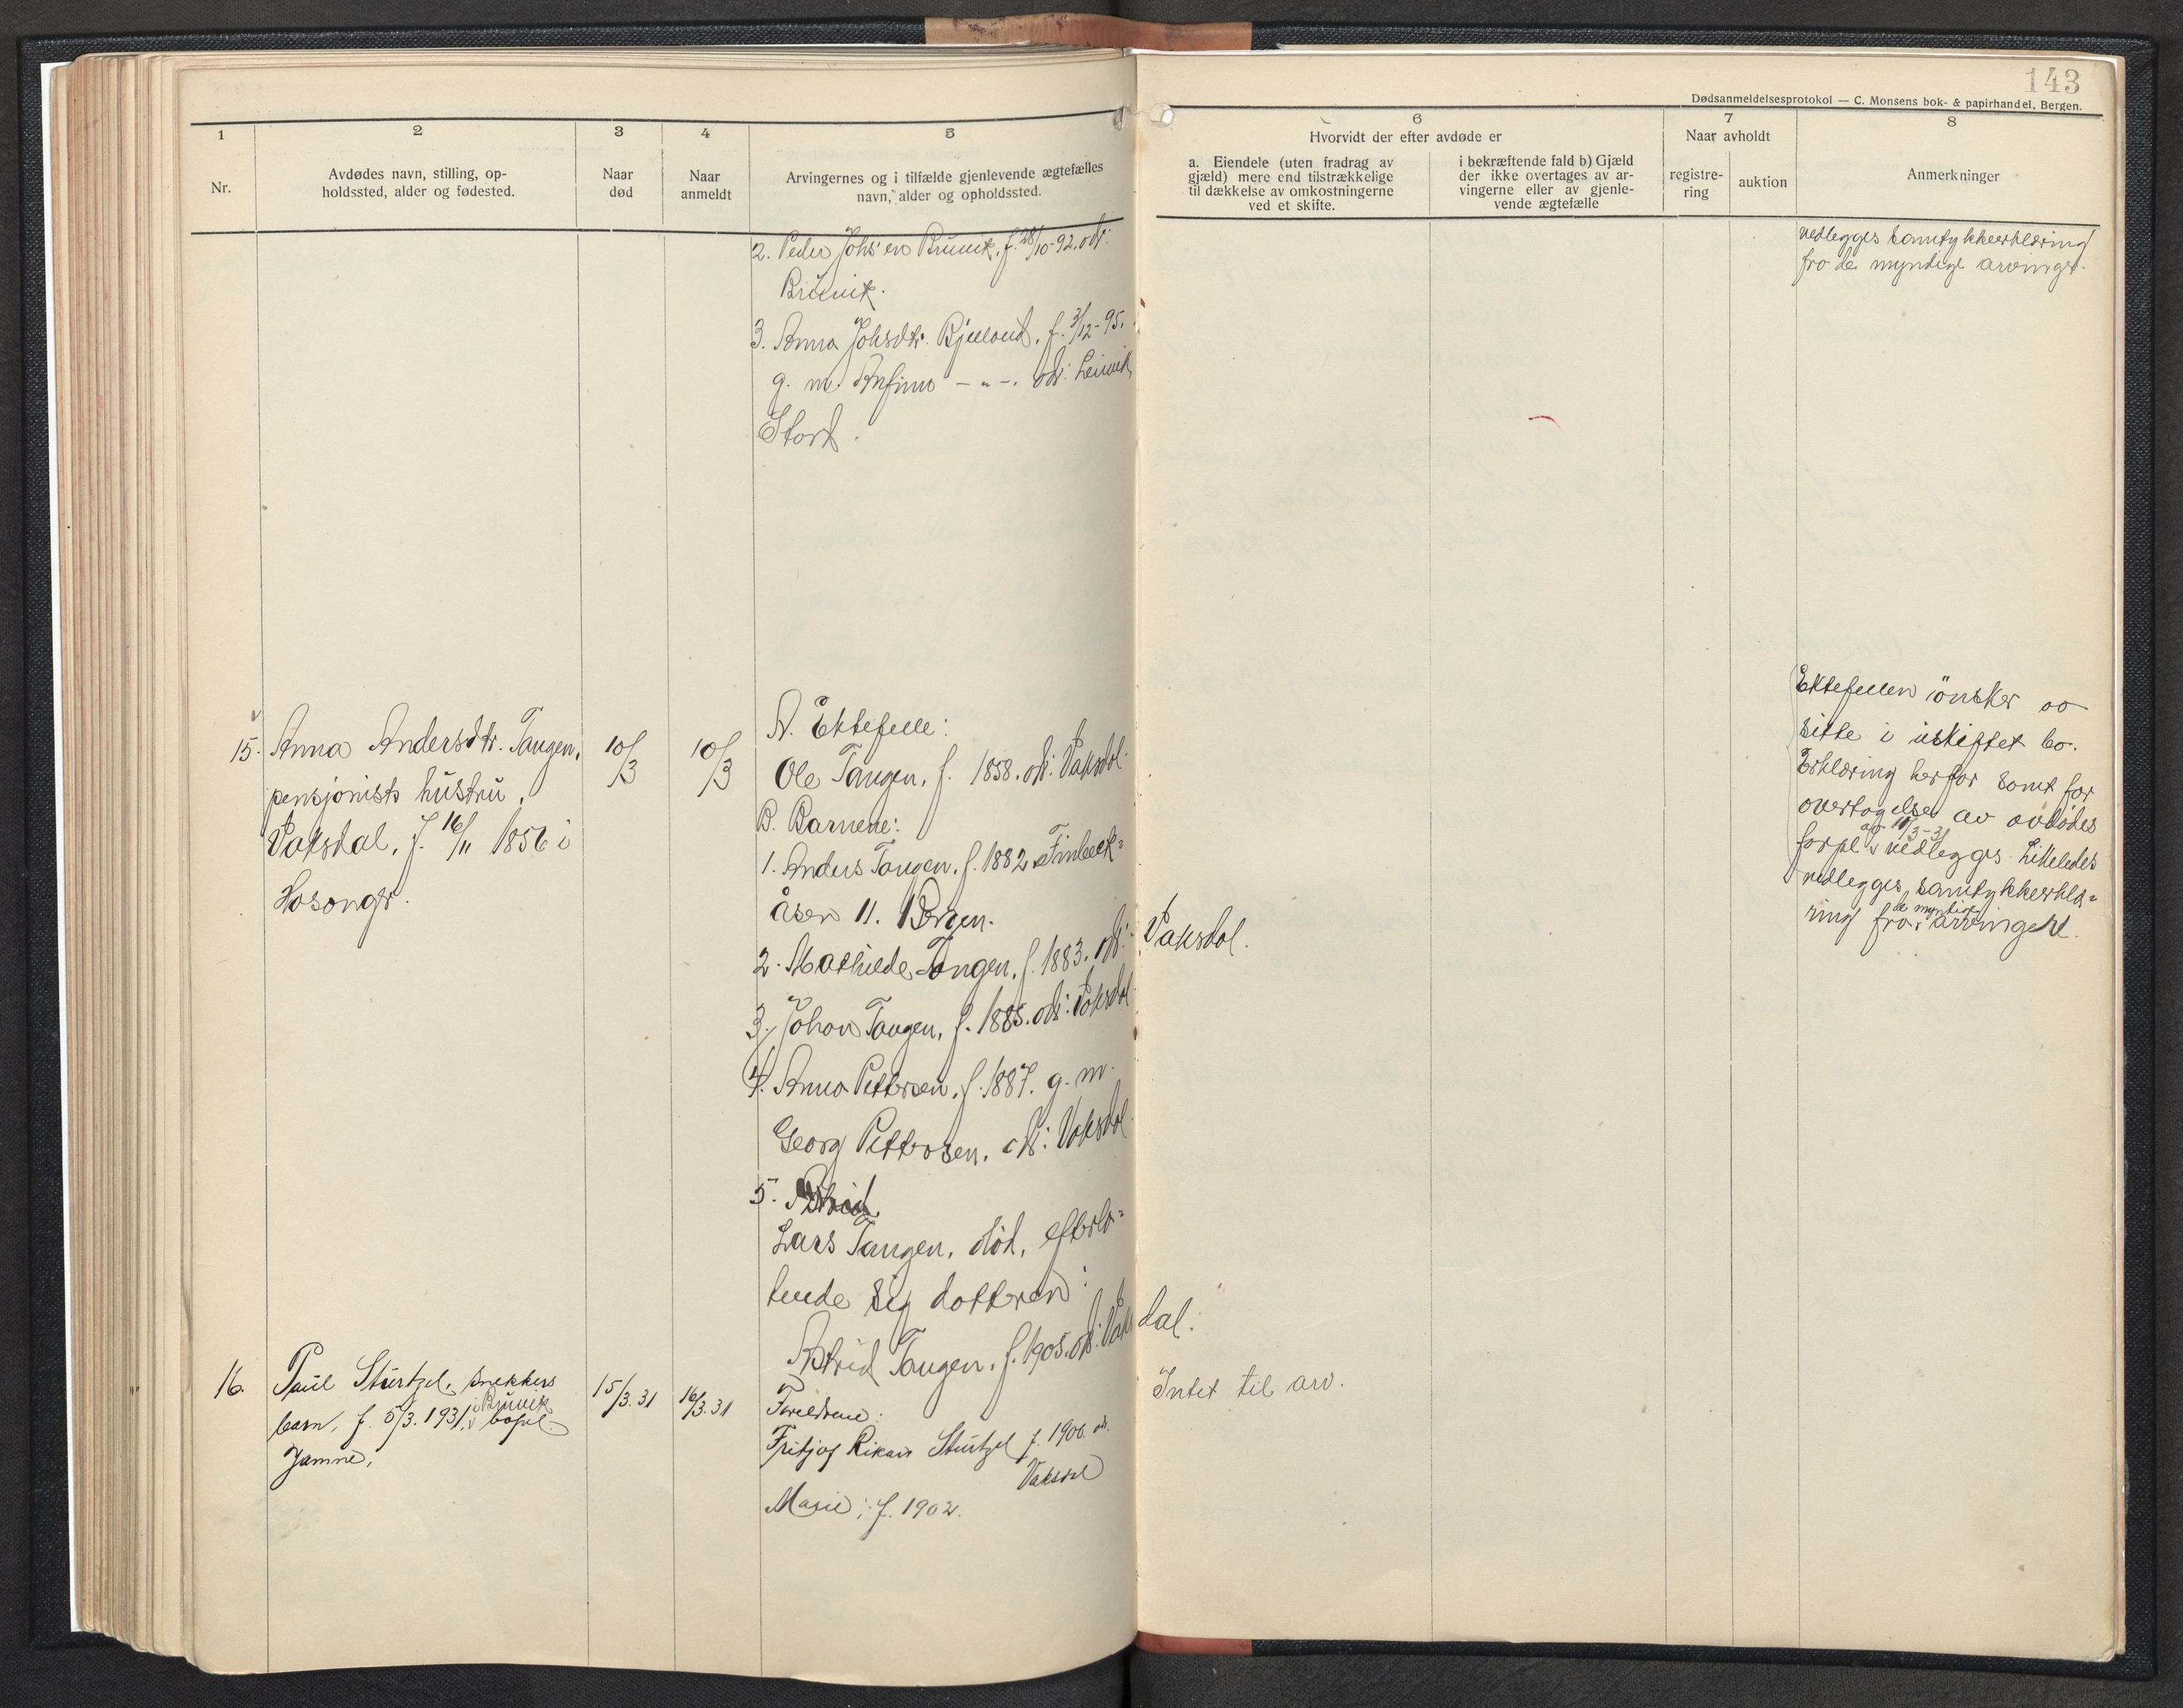 143
Dødsanmeldelsesprotokol — C. Monsens bok- & papirhandel, Bergen.
1
2
3
4
5
6
7
8
Nr.
Avdødes navn, stilling, op-
holdssted, alder og fødested.
Naar
død
Naar
anmeldt
Arvingernes og i tilfælde gjenlevende ægtefælles
navn, alder og opholdssted.
Hvorvidt der efter avdøde er
a. Eiendele (uten fradrag av
gjæld) mere end tilstrækkelige
til dækkelse av omkostningerne
ved et skifte.
i bekræftende fald b) Gjæld
der ikke overtages av ar-
vingerne eller av gjenle-
vende ægtefælle
Naar avholdt
registre-
ring
auktion
Anmerkninger
2. Peder Johs'en Bruvik, f. 28/10-92. ods:
Bruvik.
3. Anna Johsdtr. Bjelland, f. 3/12-95.
g. m. Anfinn -"-. ods: Leirvik
Stord.
vedlegges samtykkeerklæring
fra de myndige arvinger.
15. Anna Andersdtr. Tangen,
pensjonists hustru,
Vaksdal, f. 16/11 1856 i
Hosanger.
10/3
10/3
A. Ektefelle:
Ole Tangen, f. 1858. ods: Vaksdal.
B. Barnene:
1. Anders Tangen, f. 1882
åsen 11. Bergen.
2. Mathilde Tangen, f. 1883. ods: Vaksdal.
3. Johan Tangen, f. 1885. ods: Vaksdal
4. Anna Pettersen, f. 1887. g. m.
Georg Pettersen. ods: Vaksdal.
5. Astrid
Lars Tangen, død, efterla-
tende sig datteren:
Astrid Tangen. f. 1905. ods: Vaksdal.
Ektefellen ønsker aa
sitte i uskiftet bo.
Erklæring herfor samt for
overtagelse av avdødes
forpl. av 10/3-31 vedlegges. Likeledes
vedlegges samtykkeerklæ-
ring fra de myndige arvinger.
16. Paul Stürtzel, snekkers
barn, f. 5/3. 1931, i Bruvik bopel
Jamne,
15/3.31
16/3.31
Foreldrene:
Fritjof Rikard Stürtzel f. 1906. ods.
Vaksdal
Marie; f. 1902.
Intet til arv.